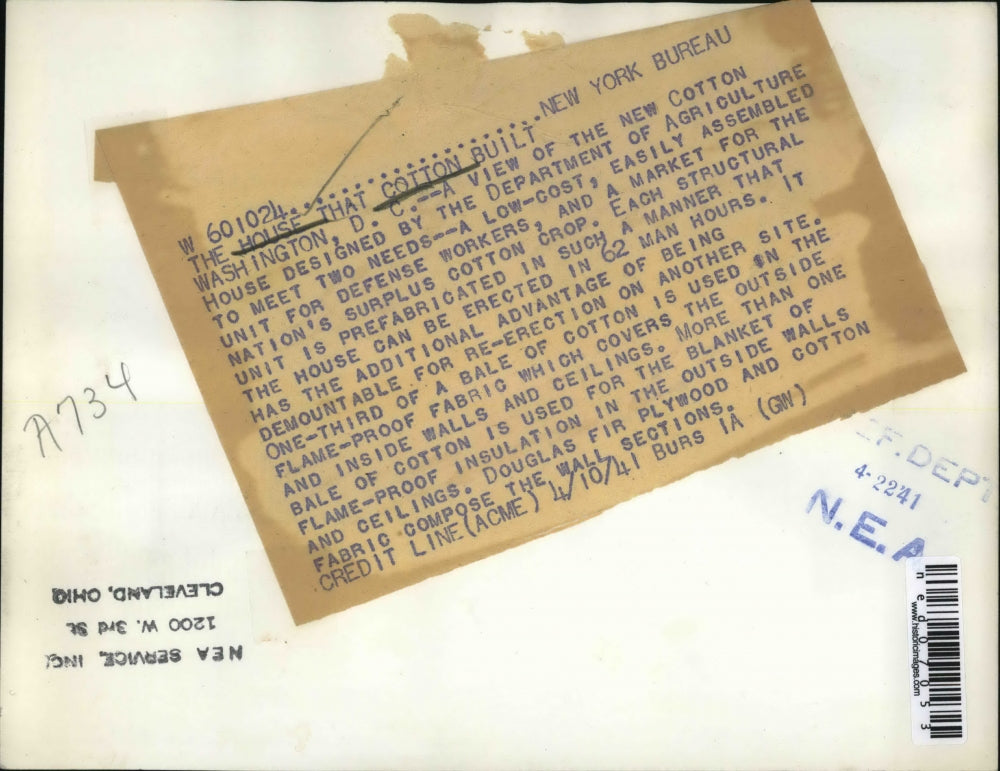 W 601024.......................NEW YORK BUREAU
THE HOUSE THAT COTTON BUILT
WASHINGTON, D. C.--A VIEW OF THE NEW COTTON
HOUSE DESIGNED BY THE DEPARTMENT OF AGRICULTURE
TO MEET TWO NEEDS--A LOW-COST, EASILY ASSEMBLED
UNIT FOR DEFENSE WORKERS, AND A MARKET FOR THE
NATION'S SURPLUS COTTON CROP. EACH STRUCTURAL
UNIT IS PREFABRICATED IN SUCH A MANNER THAT
THE HOUSE CAN BE ERECTED IN 62 MAN HOURS. IT
HAS THE ADDITIONAL ADVANTAGE OF BEING
DEMOUNTABLE FOR RE-ERECTION ON ANOTHER SITE.
ONE-THIRD OF A BALE OF COTTON IS USED IN THE
FLAME-PROOF FABRIC WHICH COVERS THE OUTSIDE
AND INSIDE WALLS AND CEILINGS. MORE THAN ONE
BALE OF COTTON IS USED FOR THE BLANKET OF
FLAME-PROOF INSULATION IN THE OUTSIDE WALLS
AND CEILINGS. DOUGLAS FIR PLYWOOD AND COTTON
FABRIC COMPOSE THE WALL SECTIONS. (GW)
CREDIT LINE (ACME) 4/10/41 BURS IA
A734
EF. DEPT
4-22 41
N.E.A
NEA SERVICE, INC.
1200 W. 3rd St.
CLEVELAND, OHIO
www.historicimages.com
ned07053